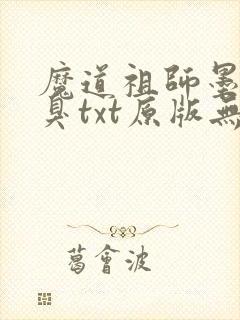 魔道祖師墨
臭txt原版無
葛會波